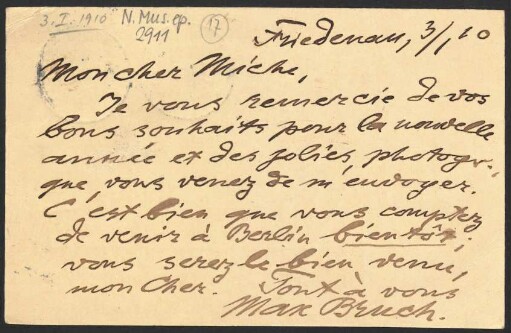 3. I. 1910 N. Mus. ep. 2911 17
Friedenau, 3/1 10
Mon cher Miche,
Je vous remercie de vos
bons souhaits pour la nouvelle
année et des jolies photogr.,
que vous venez de m'envoyer.
C'est bien que vous comptez
de venir à Berlin bientôt;
vous serez le bien venu,
mon Cher. Tout à vous
Max Bruch.